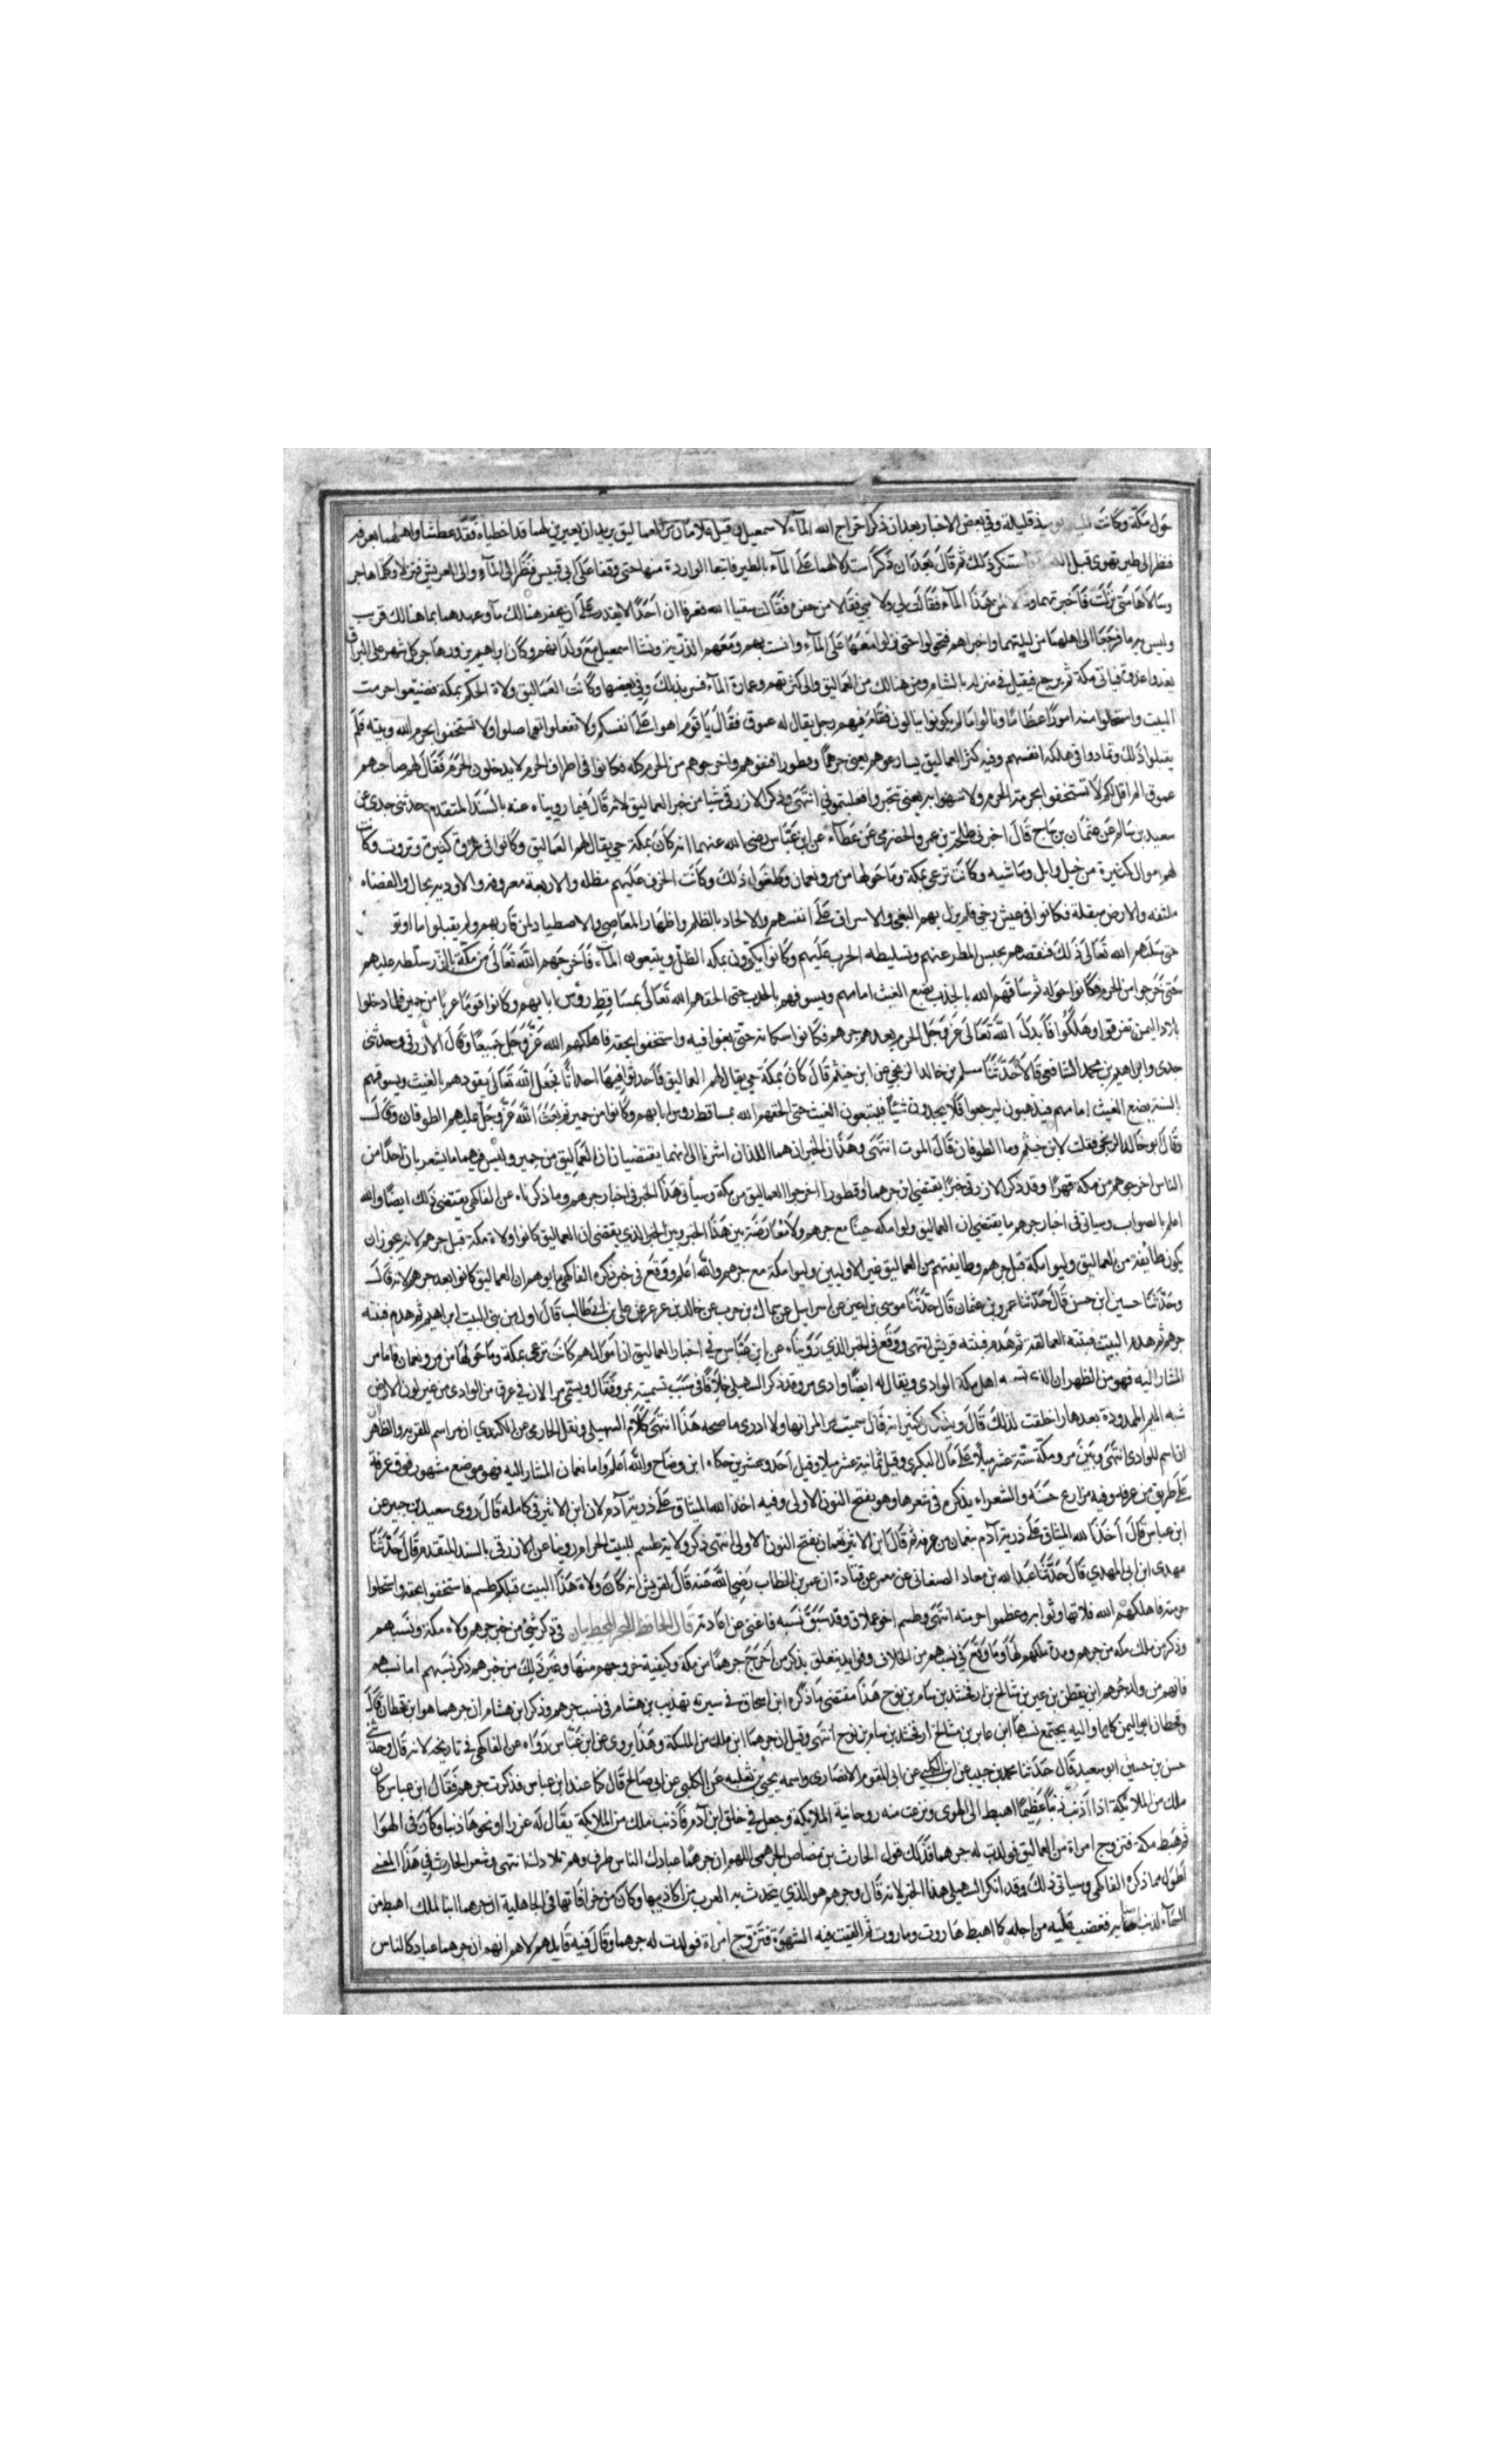 حول مكة وكانت المياه يومئذ قليلة وفي بعض الاخبار بعد ان ذكر اخراج الله المآء لاسمعيل قبل غلامان من العماليق يريدان بعيرين لهما قد اخطياه فقد عطشا واهلهما بعرفة
فنظر الى طير تهوى قبل ذلك ثم قال بعد ان ذكر استدلالهما على المآء بالطير فاتبعا الواردة منها حتى وقفا على ابي قبيس فنظرا الى المآء والى العريش فنزلا وكلما هاجر
وسالاها متى نزلت فاخبرتهما وقالا لمن هذا المآء فقالت لي ولابني فقالا من حفره فقالت سقيا الله فعرفا ان احدا لا يقدر على ان يحفر هنالك مآء وعهدهما بما هنالك قريب
وليس به ما فرجعا الى اهلهما من ليلتهما واخبراهم فتحولوا حتى نزلوا معها على المآء وانست بهم ومعهم الذرية ونشا اسمعيل مع ولدانهم وكان ابراهيم يزور هاجر كل شهر على البراق
يغدوا غدوة فياتى مكة ثم يرجع فيقيل في منزله بالشام ومن هنالك من العماليق والى كثرتهم وعمارة المآء فسر بذلك وفي بعضها وكانت العماليق ولاة الحكم بمكة فضيعوا حرمت
البيت واستحلوا منه امورًا عظاما ونالوا ما لم يكونوا ينالون فقام فيهم رجل يقال له عموق فقال يا قوم ابقوا على انفسكم ولا تفعلوا ولا تستخفوا بحرم الله وبيته فلم
يقبلوا ذلك وتمادوا في هلكة انفسهم وفيه كثر العماليق يعني جرهما وقطورا فنفوهم واخرجوهم من الحرم كله فكانوا في اطراف الحرم لا يدخلون الحرم فقال لهم صاحبهم
عموق الم اقل لكم لا تستخفوا بحرمة الحرم فغلبتموني انتهى وذكر الازرقي شيا من خبر العماليق لانه قال فيما رويناه عنه بالسند المتقدم حدثني جدي عن
سعيد بن سالم عن عثمان بن ساج قال اخبرني طلحة بن عمرو الحضرمي عن عطآء عن ابن عباس رضي الله عنهما انه كان بمكة حي يقال لهم العماليق وكانوا في عزة وكثرة وثروت وكانت
لهم اموال كثيرة من خيل وابل وماشية وكانت ترعى بمكة وما حولها من مر ونعمان وكانت الخرف عليهم مظله والاربعة معروفة والاودية بحال والعضاه
ملتفه والارض مبقلة فكانوا في عيش رخي فلم يزل بهم البغي والاسراف على انفسهم والالحاد بالظلم واظهار المعاصي والاصطهاد لمن قاربهم ولم يقبلوا ما اوتو
حتى سلبهم الله تعالى ذلك فنقصهم بحبس المطر عنهم وتسليطه الجدب عليهم وكانوا يكرون بمكه الظل ويبيعون المآء فاخرجهم الله تعالى من مكة بالذر سلطه عليهم
حتى خرجوا من الحرم فكانوا حوله ثم ساقهم الله بالجدب يضع الغيث امامهم ويسوقهم بالجدب حتى الحقهم الله تعالى بمساقط روس ابايهم وكانوا قوما عربا من حمير فلما دخلوا
بلاد اليمن تفرقوا وهلكوا فابدل الله تعالى عز وجل الحرم بعدهم جرهم فكانوا سكانه حتى بغوا فيه واستخفوا بحقه فاهلكهم الله عز وجل جميعًا وقال الازرقي وحدثني
جدي وابراهيم بن محمد الشافعي قالا حدثنا مسلم بن خالد الزنجي عن ابن خيثم قال كان بمكة حي يقال لهم العماليق فاحدثوا فيها احداثا فجعل الله تعالى يقودهم بالغيث ويسوقهم
بالسنة يضع الغيث امامهم فيذهبون ليرجعوا فلا يجدون شيئا فيتبعون الغيث حتى الحقهم الله بمساقط روس ابايهم وكانوا من حمير ثم بعث الله عز وجل عليهم الطوفان وقال
وقال ابو خالد الزنجي فقلت لابن خيثم وما الطوفان قال الموت انتهى وهذان الخبران هما اللذان اشرنا الى انهما يقتضيان ان العماليق من حمير وليس فيهما ما يشعر بان احدا من
الناس اخرجوهم من مكة قهرًا وقد ذكر الازرقي خبرًا يقتضي ان جرهما وقطورا اخرجوا العماليق من مكة وسيأتي هذا الخبر في اخبار جرهم وما ذكرناه عن الفاكهي يقتضي ذلك ايضا والله
اعلم بالصواب وسياتى في اخبار جرهم ما يقتضي ان العماليق ولوا مكه حينًا مع جرهم ولا معارضة بين هذا الخبر وبين الخبر الذي يقتضي ان العماليق كانوا ولاة مكة قبل جرهم لانه يجوز ان
يكون طايفة من العماليق وليوا مكة قبل جرهم وطايفة منهم من العماليق غير الاوليين وليوا مكة مع جرهم والله اعلم ووقع في خبر ذكره الفاكهي ما يوهم ان العماليق كانوا بعد جرهم لانه قال
وحدثنا حسين ابن حسن قال حدثنا عمرو بن عثمان قال حدثنا موسى بن اعين عن اسرائيل عن سماك بن حرب عن خالد بن عرعرة عن علي بن ابي طالب قال اول من بنى البيت ابراهيم ثم هدم فبنته
جرهم ثم هدم البيت فبنته العمالقة ثم هدم فبنته قريش انتهى ووقع في الخبر الذي رويناه عن ابن عباس في اخبار العماليق ان اموالهم كانت ترعى بمكة وما حولها من مر ونعمان فاما مر
المشار اليه فهو مر الظهران الذي تسميه اهل مكة الوادي ويقال له ايضا وادي مر وذكر السهيلي خلافًا في سبب تسميته بمر وفقال ويسمى مر الان في عرق من الوادي من غير لون الارض
شبه الميم الممدودة بعدها را خلقت لذلك قال ويذكر عن كثير انه قال سميت مر المرارتها ولا ادري ما صحه هذا انتهى كلام السهيلي ونقل الحازمي عن الكندي ان مر اسم للقرية والظهران
ان اسم للوادي انتهى وبين مر ومكة ستة عشر ميلًا على ما قال البكري وقيل ثمانية عشر ميلا وقيل احد وعشرين حكاه ابن وضاح والله اعلم واما نعمان المشار اليه فهو موضع مشهور فوق عرفة
على طريق من عرفه وفيه مزارع حسنه والشعراء يذكره في شعرها وهو بفتح النون الاولى وفيه اخذ الله الميثاق على ذرية آدم لان ابن الاثير في كامله قال روى سعيد بن جبير عن
ابن عباس قال اخذ الله الميثاق على ذرية آدم بنعمان من عرفه ثم قال ابن الاثير نعمان بفتح النون الاولى انتهى ذكر ولاية طسم للبيت الحرام روينا عن الازرقي بالسند المتقدم قال حدثنا
مهدي ابن ابي المهدي قال حدثنا عبد الله بن معاذ الصنعاني عن معمر عن قتادة ان عمر بن الخطاب رضي الله عنه قال لقريش انه كان ولاة هذا البيت قبلكم طسم فاستخفوا بحقه واستحلوا
حرمته فاهلكهم الله فلا تهاونوا به وعظموا حرمته انتهى وطسم اخو عملاق وقد سبق نسبه فاغنى عن اعادته قال الحافظ النجم المحيط بيان في ذكر شئ من خبر جرهم ولاه مكة ونسبهم
وذكر من ملك مكه من جرهم ومدة ملكهم لها وما وقع في نسبهم من الخلاف وفوايد يتعلق بذكر من اخرج جرهما من مكة وكيفية خروجهم منها وغير ذلك من خبرهم ذكر نسبهم اما نسبهم
فانهم من ولد جرهم ابن يقطن بن عيبر بن شالخ بن ارفخشد بن سام بن نوح هذا مقتضى ما ذكره ابن اسحاق في سيرته تهذيب بن هشام في نسب جرهم وذكر ابن هشام ان جرهما هو ابن قحطان قال
وقحطان ابو اليمن كلها واليه يجتمع نسبها ابن عابر بن شالخ ارفخشد بن سام بن نوح انتهى وقيل ان جرهما ابن ملك من الملائكة وهذا يروى عن ابن عباس رواه عن الفاكهي في تاريخه لانه قال وحدثني
حسن بن حسين ابو سعيد قال حدثنا محمد بن حبيب عن ابن الكلبي عن ابي المقوم الانصاري واسمه يحيى بن ثعلبه عن الكلبي عن ابي صالح قال كنا عند ابن عباس فذكرت جرهم فقال ابن عباس كان
ملك من الملائكة اذا اذنب ذنبًا عظيمًا اهبط الى الهوى ونزعت منه روحانية الملايكة وجعل في خلق ابن آدم فاذنب ملك من الملايكة يقال له عزرا او نحوها ذنبا وكان في الهوا
ثم هبط مكة فتزوج امراة من العماليق فولدت له جرهما فذلك قول الحارث بن مضاض الجرهمي اللهم ان جرهما عبادك الناس طرف وهم تلادك انتهى وشعر الحارث في هذا المعنى
اطول مما ذكره الفاكهي وسياتى ذلك وقد انكر السهيلي هذا الخبر لانه قال وجرهم هو الذي يتحدث به العرب من اكاذيبها وكان من خرافاتها في الجاهلية ان جرهما ابنا لملك اهبط من
السمآء لذنب اصابه فغضب عليه من اجله كما اهبط هاروت وماروت ثم القيت فيه الشهوة فتزوج امراة فولدت له جرهما وقال فيه قايلهم لاهم ان جرهما عبادك الناس